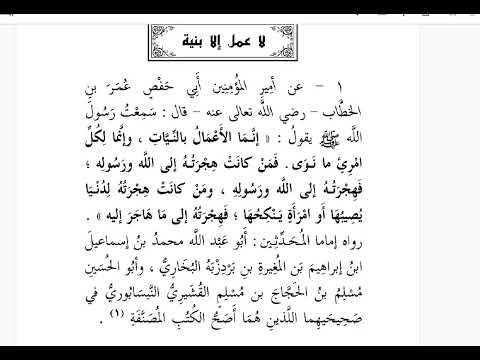 لا عمل إلا بنية
١ – عن أمِيرِ المُؤْمِنِين أَبِي حَفْصٍ عُمَرَ بنِ
الخَطَّاب – رضي اللَّه تعالى عنه – قال : سَمِعْتُ رَسُولَ
اللَّه ﷺ يقولُ : « إنَّمَا الأَعْمَالُ بالنِّيَّاتِ ، وَإنَّما لِكُلِّ
امْرِئٍ ما نَـوَى . فَمَنْ كانَتْ هِجْرَتُـهُ إلى اللَّه ورَسُولِه ؛
فَهِجْرَتُـهُ إلى اللَّه ورسولِهِ ، ومَنْ كانَتْ هِجْرَتُهُ لِدُنْيَا
يُصِيبُها أَو امْرَأَةٍ يَـنْكِحُهَا ؛ فَهِجْرَتُهُ إلى مَا هَاجَرَ إليه » .
رواه إماما المُحَـدِّثِـين : أَبُو عَبْد اللَّه محمدُ بنُ إسماعيلَ
ابنُ إبراهيمَ بَنِ المُغيرةِ بنِ بَرْدِزْبَهْ البُخَارِيُّ ، وأبُو الحُسَينِ
مُسْلِمُ بنُ الحَجَّاجَ بن مُسْلِمٍ القُشَيْرِيُّ النَّيْسَابُورِيُّ في
صَحِيحَيهِما اللَّذَينِ هُمَا أَصَحُّ الكُتُبِ المُصَنَّفَةِ (١) .